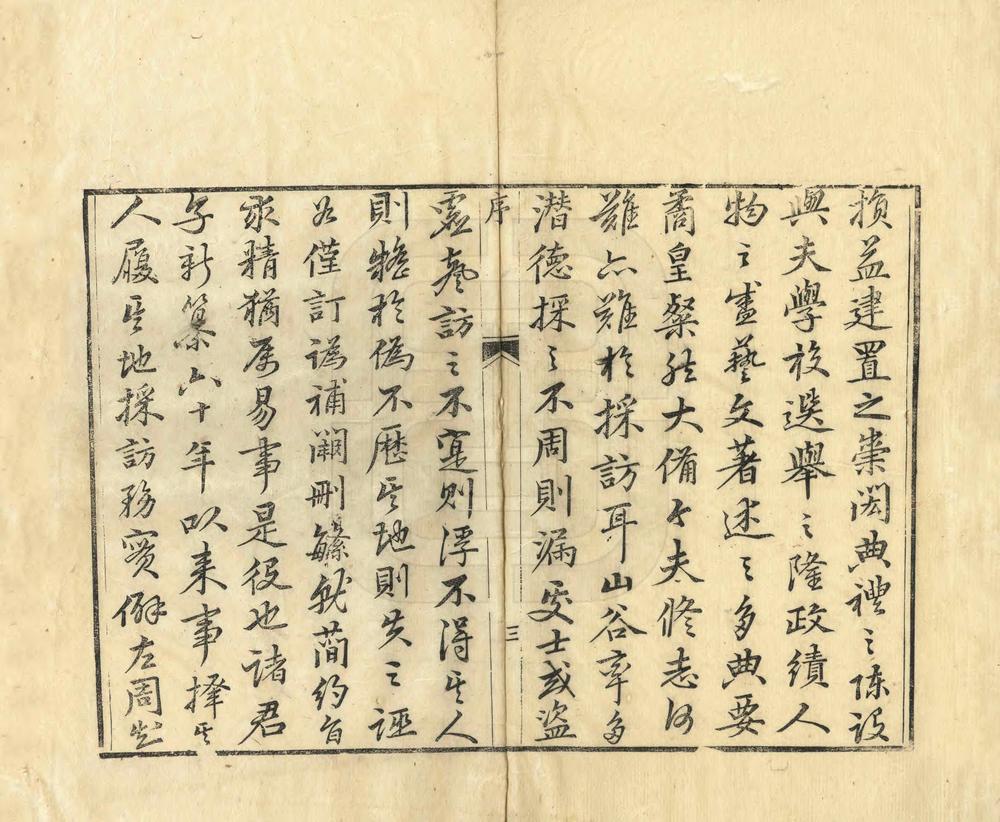 損益建置之崇閎典禮之陳設
與夫學校選舉之隆政績人
物之盛藝文著述之多典要
矞皇粲然大備今夫修志何
難亦難於採訪耳山谷率多
潛德採之不周則漏處士或盜
序
三
虛聲訪之不寔則浮不得其人
則雜於偽不歷其地則失之誣
若僅訂譌補闕刪繁就簡約旨
求精猶屬易事是役也諸君
子新纂六十年以來事擇其
人履其地採訪務實僻左周